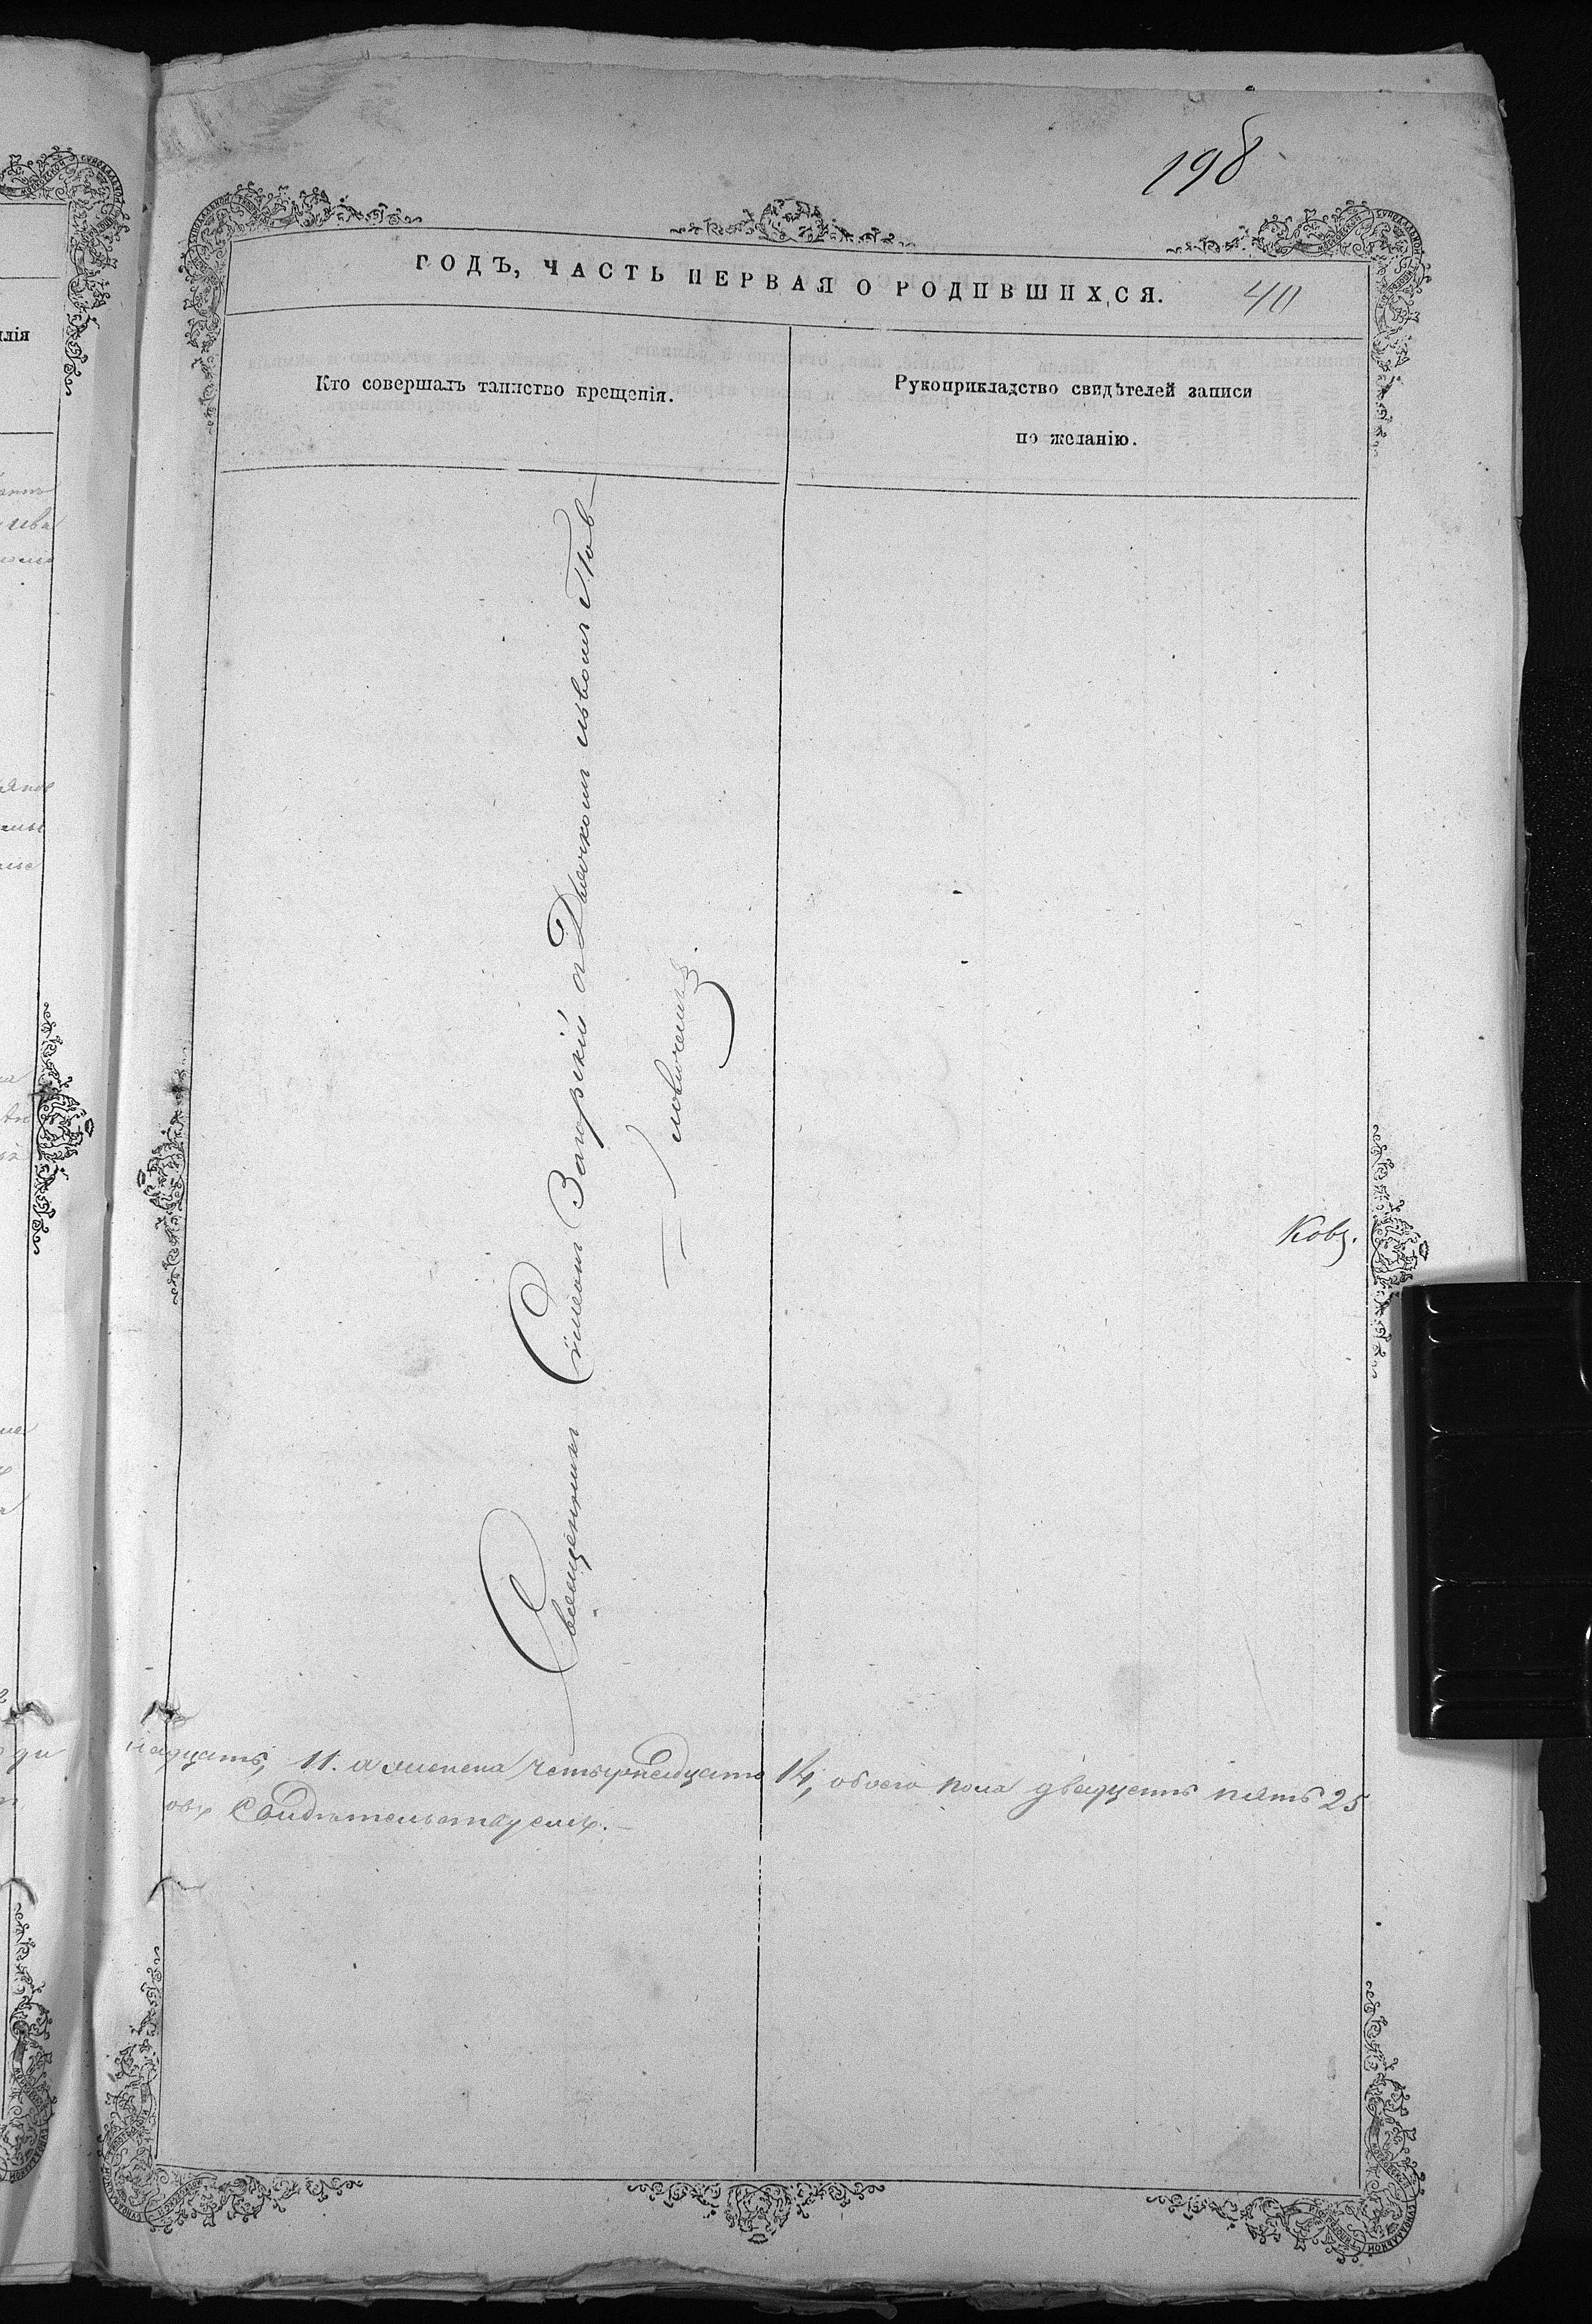 198
ГОДЪ, ЧАСТЬ ПЕРВАЯ О РОДИВШИХСЯ. 40
Кто совершалъ таинство крещенія.
Рукоприкладство свидѣтелей записи
по желанію.
Священникъ Сѵмеонъ Загорскій съ Дьячкомъ Львомъ
Ковз.
надцать, 11. а женска четырнадцать 14, обоего пола двадцать пять 25
свидѣтельствуемъ.
лія